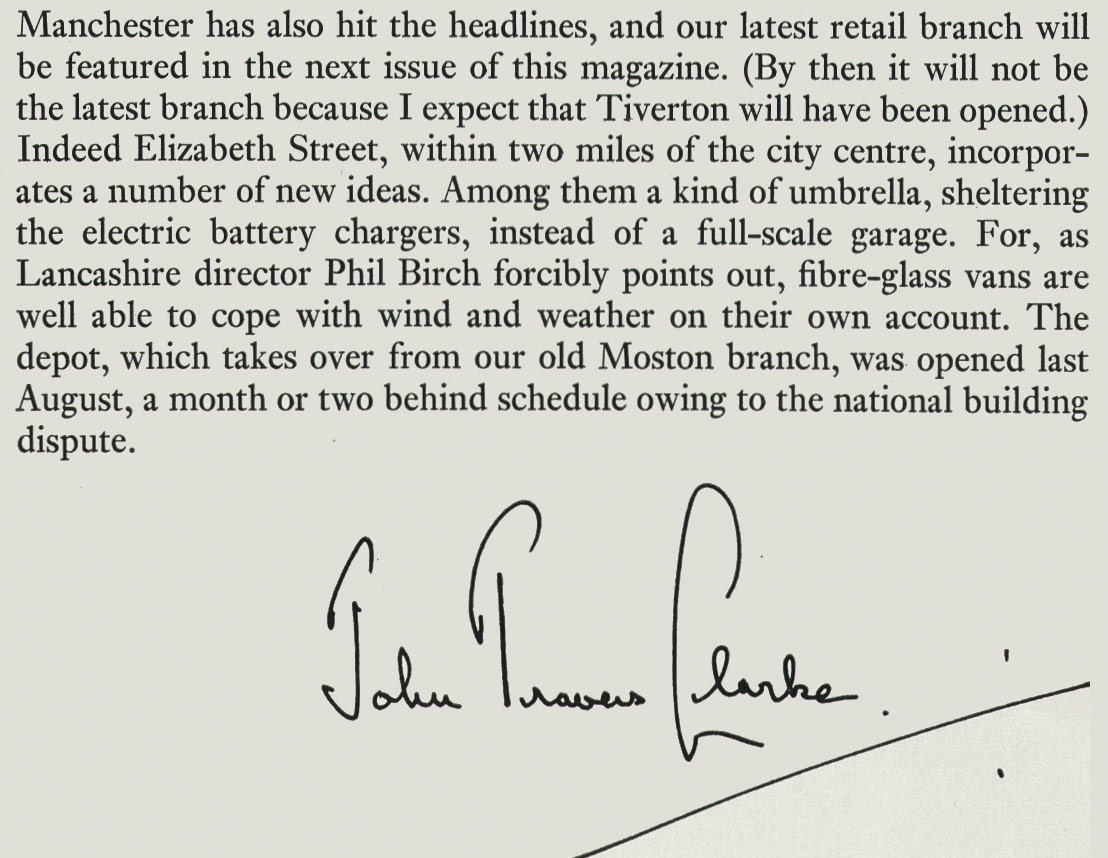 Manchester has also hit the headlines, and our latest retail branch will
be featured in the next issue of this magazine. (By then it will not be
the latest branch because I expect that Tiverton will have been opened.)
Indeed Elizabeth Street, within two miles of the city centre, incorpor-
ates a number of new ideas. Among them a kind of umbrella, sheltering
the electric battery chargers, instead of a full-scale garage. For, as
Lancashire director Phil Birch forcibly points out, fibre-glass vans are
well able to cope with wind and weather on their own account. The
depot, which takes over from our old Moston branch, was opened last
August, a month or two behind schedule owing to the national building
dispute.
John Travers Clarke.